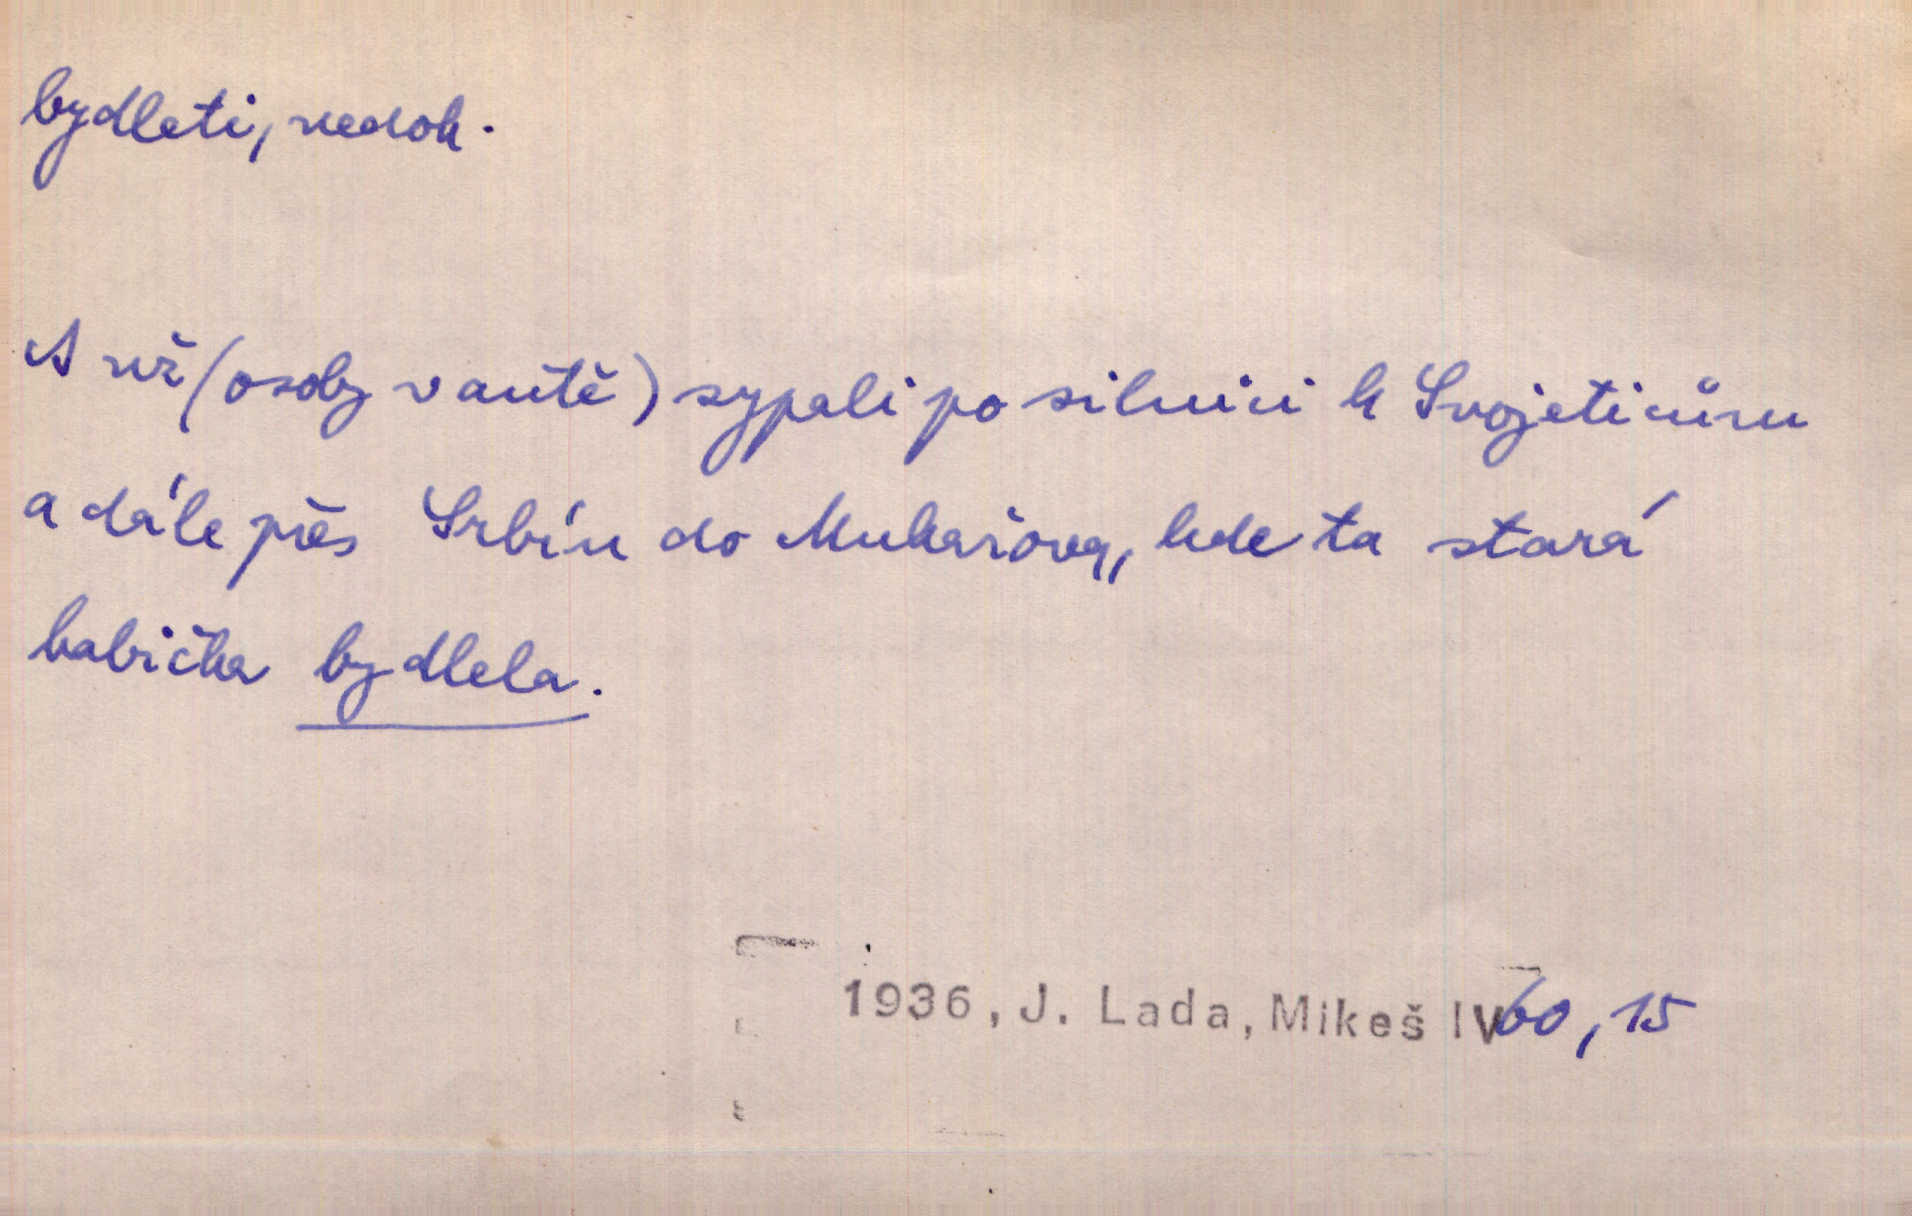 bydleti, nedok.
A už (osoby v autě) sypali po silnici k Svojeticům
a dále přes Srbín do Mukařova, kde ta stará
babička bydlela.
1936, J. Lada, Mikeš IV 60, 15